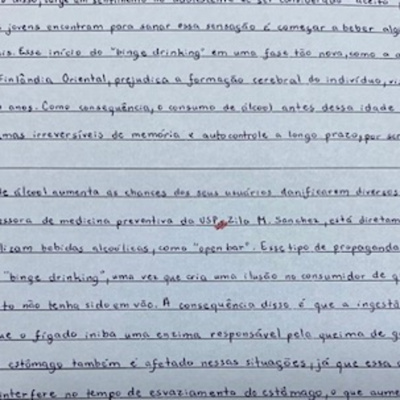 jovens encontram para sanar essa sensação é começar a beber
is. Esse início do "binge drinking" em uma fase tão nova, como a
Finlândia Oriental, prejudica a formação cerebral do indivíduo,
anos. Como consequência, o consumo de álcool antes dessa idade
mas irreversíveis de memória e autocontrole a longo prazo, por
de álcool aumenta as chances dos seus usuários danificarem diversos
essora de medicina preventiva da USP, Zila M. Sanchez, está diretam
lizam bebidas alcoólicas, como "open bar". Esse tipo de propaganda
"binge drinking", uma vez que cria uma ilusão no consumidor de
to não tenha sido em vão. A consequência disso é que a ingest
ue o fígado iniba uma enzima responsável pela queima de
estômago também é afetado nessas situações, já que essa
interfere no tempo de esvaziamento do estômago, o que aume